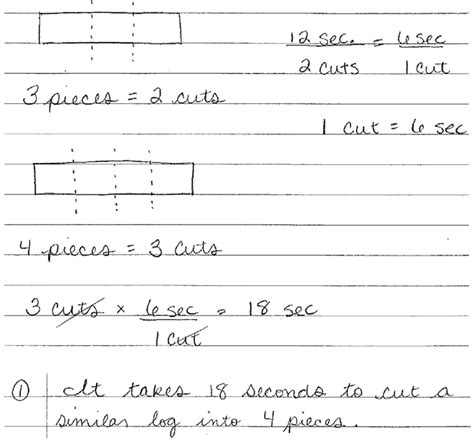 12 sec. = 6 sec
2 cuts 1 cut
3 pieces = 2 cuts
1 cut = 6 sec
4 pieces = 3 cuts
3 cuts × 6 sec = 18 sec
1 cut
① It takes 18 seconds to cut a
similar log into 4 pieces.